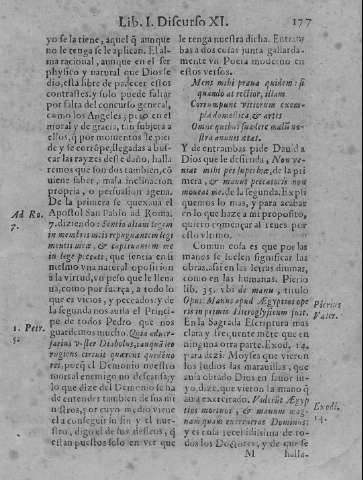 Lib. I. Discurso XI. 177
yo se la tiene, aquel q̃ aunque
no le tenga se le aplican. El al-
ma racional, aunque en el ser
physico y natural que Dios le
dio, està libre de padecer estos
contrastes, y solo puede faltar
por falta del concurso general,
como los Angeles; pero en el
moral y de gracia, tan sujeta a
que por momentos le pier-
de y se corrõpe, llegadas a bus-
car las rayzes deste daño, halla
remos que son dos tambien, cõ
uiene saber, mala inclinacion
propria, o persuasion agena.
De la primera se quexaua el
Apostol San Pablo ad Roma.
7. diziendo: Sentio aliam legem
in membris meis repugnantem legi
mentis meæ, & captiuantem me
in lege peccati, que sentia en si
mesmo vna natural oposicion
a la virtud, vn peso que le lleua
ua, como por fuerça, a todo lo
que es vicios, y peccados: y de
la segunda nos auisa el Princi-
pe de todos Pedro que nos
guardemos mucho. Quia aduer-
sarius vester Diabolus, tanquã leo
rugiens circuit quærens quem deuo
ret, porq̃ el Demonio nuestro
mortal enemigo no descansa, y
lo que dize del Demonio se ha
de entender tambien de sus mi
nistros, por cuyo medio viene
el a conseguir su fin y el nues-
tro, digo el de sus desseos, q̃
estan puestos solo en ver que
le tenga nuestra dicha. Entram
bas a dos cosas junta gallarda-
mente vn Poeta moderno en
estos versos.
Mens mihi praua quidem: si
quando at rectior, illam
Corrumpunt vitiorum exem-
pla domestica, & artis
Omne quibus suadere malũ nos-
tra annuit ætas.
Y de entrambas pide Dauid a
Dios que le defienda, Non ve-
niat mihi pes superbiæ, de la pri-
mera, & manus peccatoris non
moueat me, de la segunda. Expli
quemos lo mas, y para acabar
en lo que haze a mi proposito,
quiero començar al reues por
este vltimo.
Comun cosa es que por las
manos se suelen significar las
obras, assi en las letras diuinas,
como en las humanas. Pierio
lib. 35. vbi de manu, titulo
Opus. Manus apud Ægyptios ope
ris in primis Hieroglyficum fuit.
En la Sagrada Escritura mas
clara y frequente mẽte que en
ninguna otra parte. Exod. 14.
para dezir Moyses que vieron
los Iudios las marauillas, que
auia obrado Dios en fauor su-
yo, dize, que vieron la mano q̃
auia exercitado. Viderũt Ægyp
tios mortuos, & manum mag-
nam quam exercuerat Dominus:
y es cosa recebidissima de to-
dos los Doctores, y de que se
M halla-
Ad Ro.
7.
1. Petr.
5.
Pierius
Valer.
Exodi.
14.